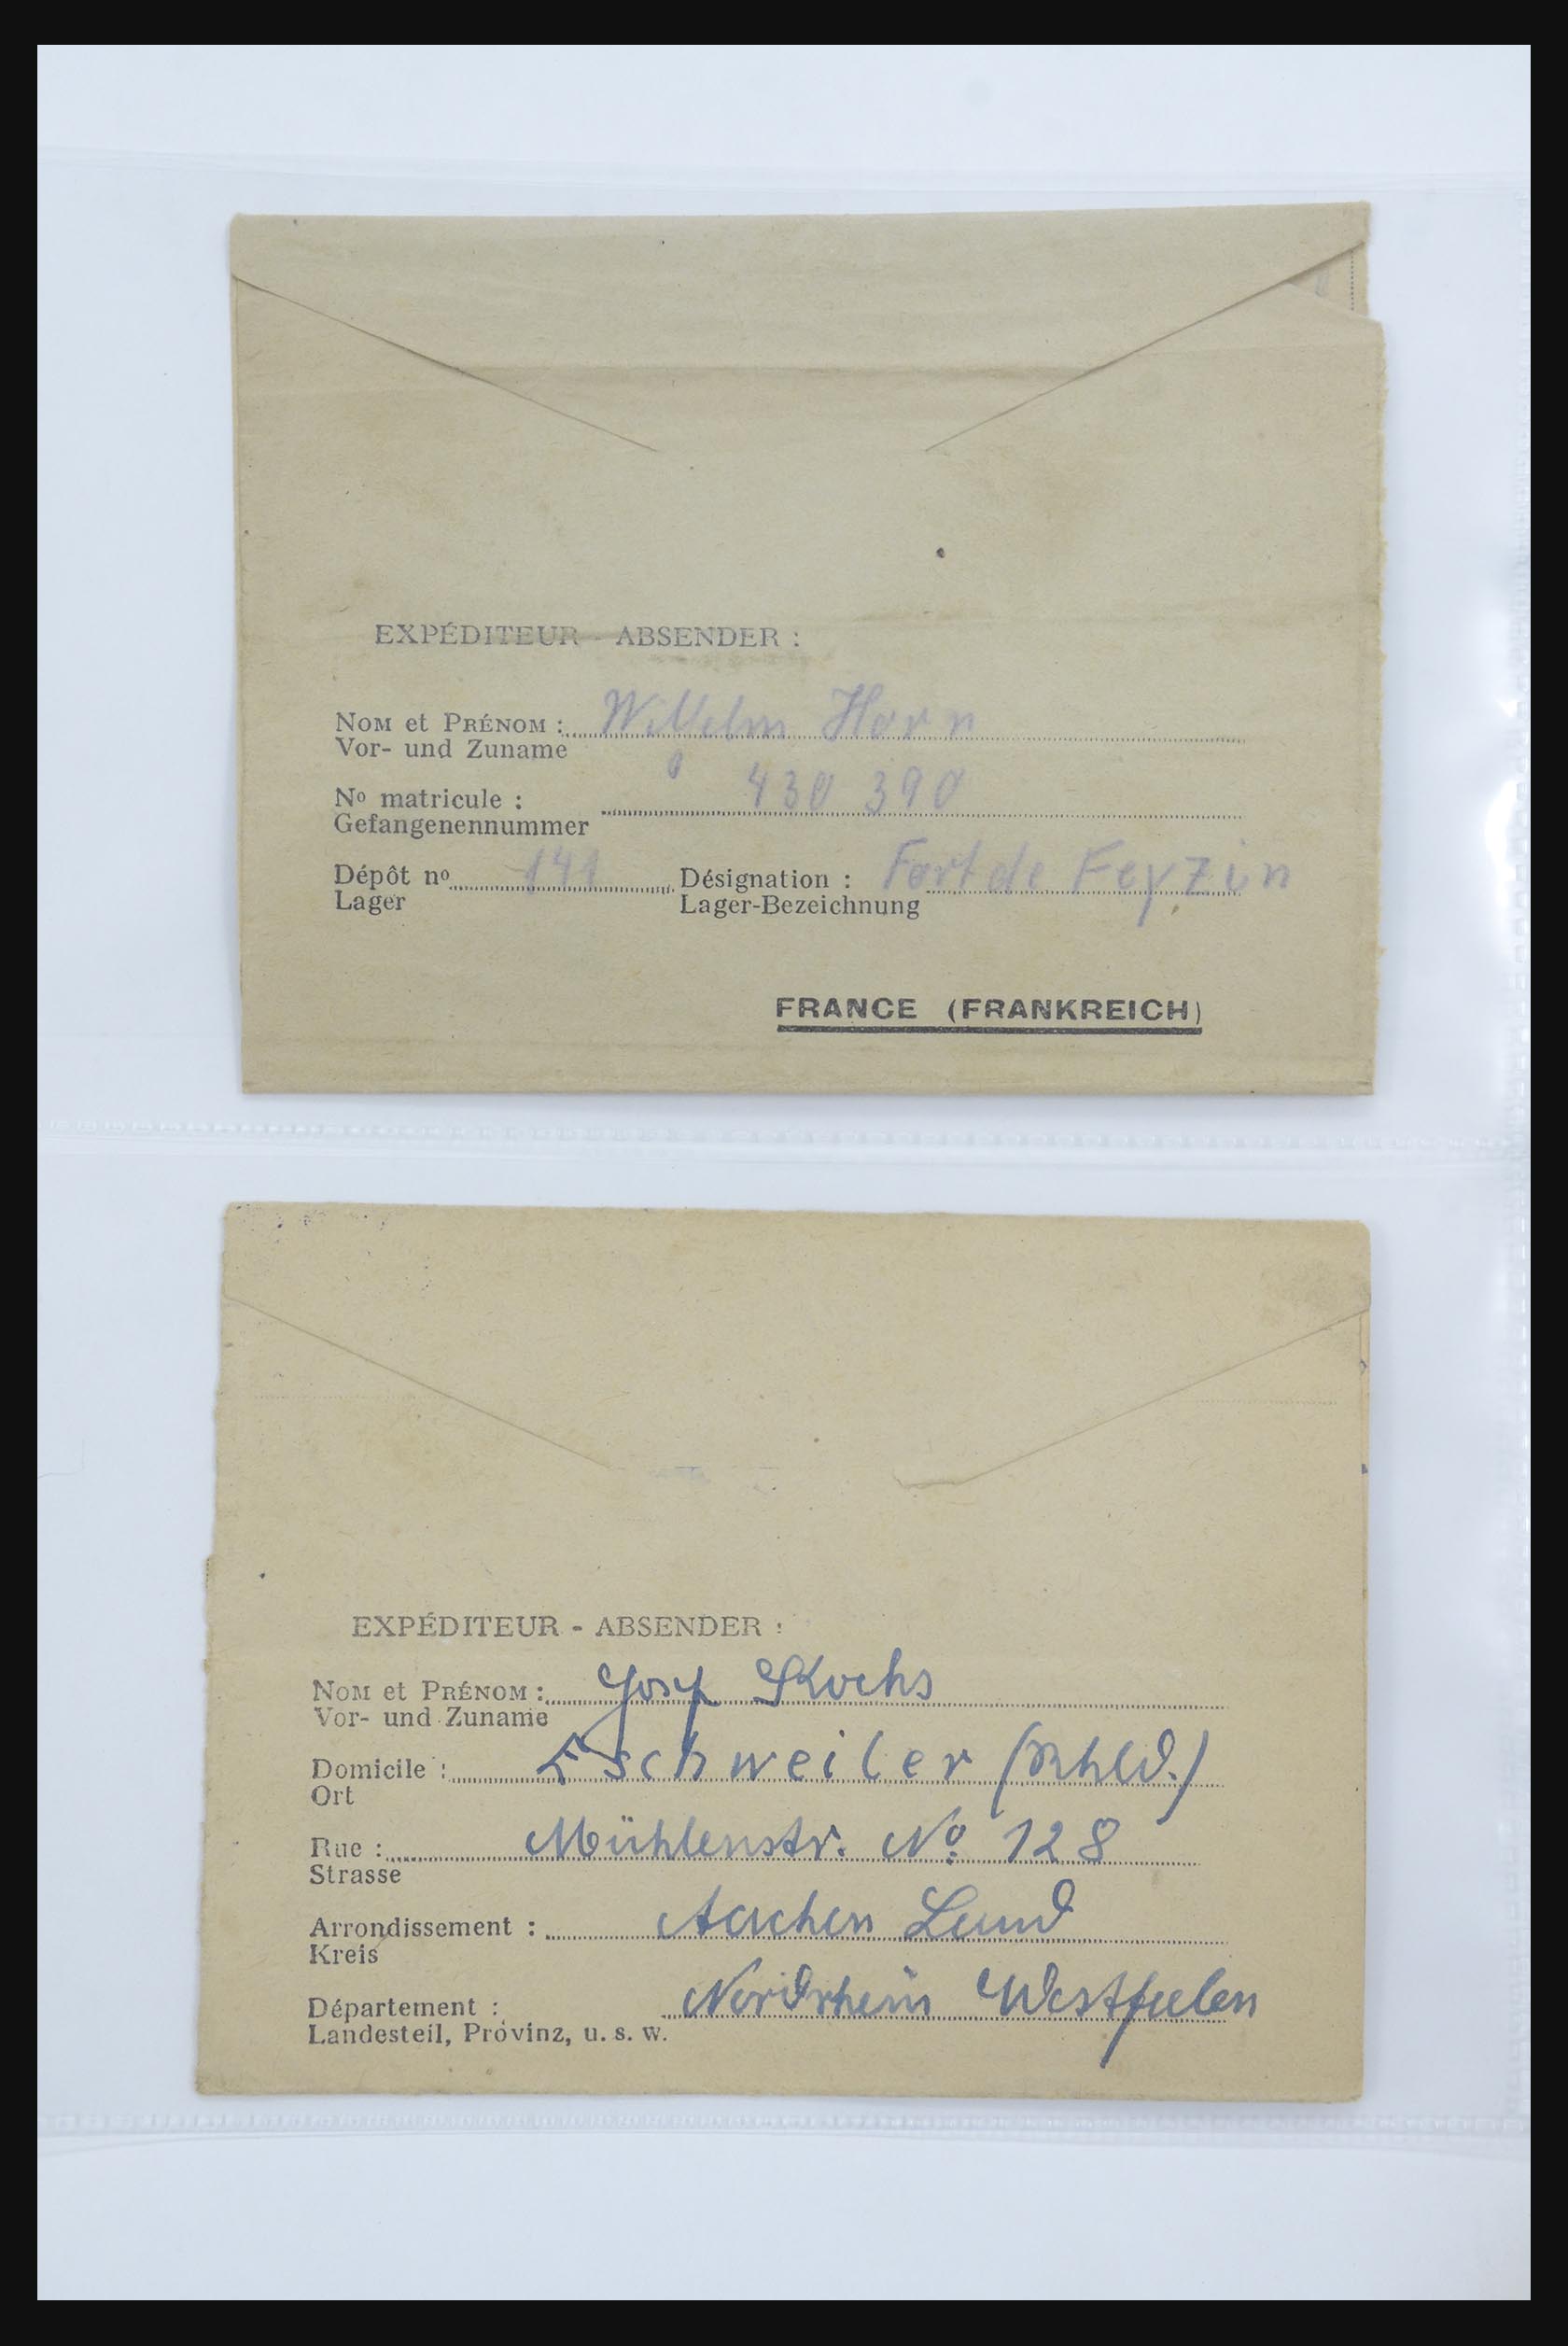 EXPÉDITEUR - ABSENDER :
NOM et PRÉNOM : Wilhelm Horn
Vor- und Zuname
Nº matricule : 430 390
Gefangenennummer
Dépôt nº 141 Désignation : Fort de Feyzin
Lager Lager-Bezeichnung
FRANCE (FRANKREICH)
EXPÉDITEUR - ABSENDER :
NOM et PRÉNOM : Josef Kochs
Vor- und Zuname
Domicile : Eschweiler (Rhld.)
Ort
Rue : Mühlenstr. Nº 128
Strasse
Arrondissement : Aachen Land
Kreis
Département : Nordrhein Westfalen
Landesteil, Provinz, u. s. w.